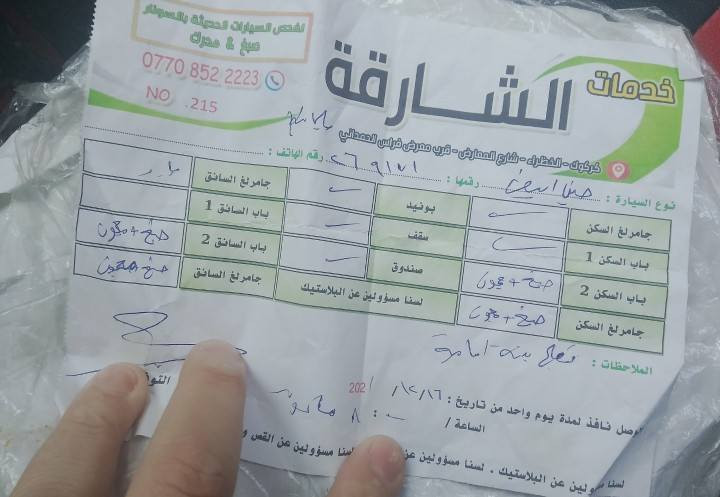 خدمات
الشـــارقة
لفحص السيارات الحديثة بالسونار
صبغ & محرك
0770 852 2223
NO. 215
كركوك - الخضراء - شارع المعارض - قرب معرض فراس الحمداني
نوع السيارة : رقمها : ٢٦٩١٧١ رقم الهاتف :
جاملرغ السكن بونيد جاملرغ السائق
باب السكن 1 سقف باب السائق 1
باب السكن 2 صبغ + معجون صندوق باب السائق 2 صبغ + معجون
جاملرغ السكن صبغ + معجون لسنا مسؤولين عن البلاستيك جاملرغ السائق صبغ + معجون
الملاحظات :
لوصل نافذ لمدة يوم واحد من تاريخ : ١٦ / ١٢ / 202
الساعة / : ٨
لسنا مسؤولين عن البلاستيك . لسنا مسؤولين عن لسنا مسؤولين عن القص و